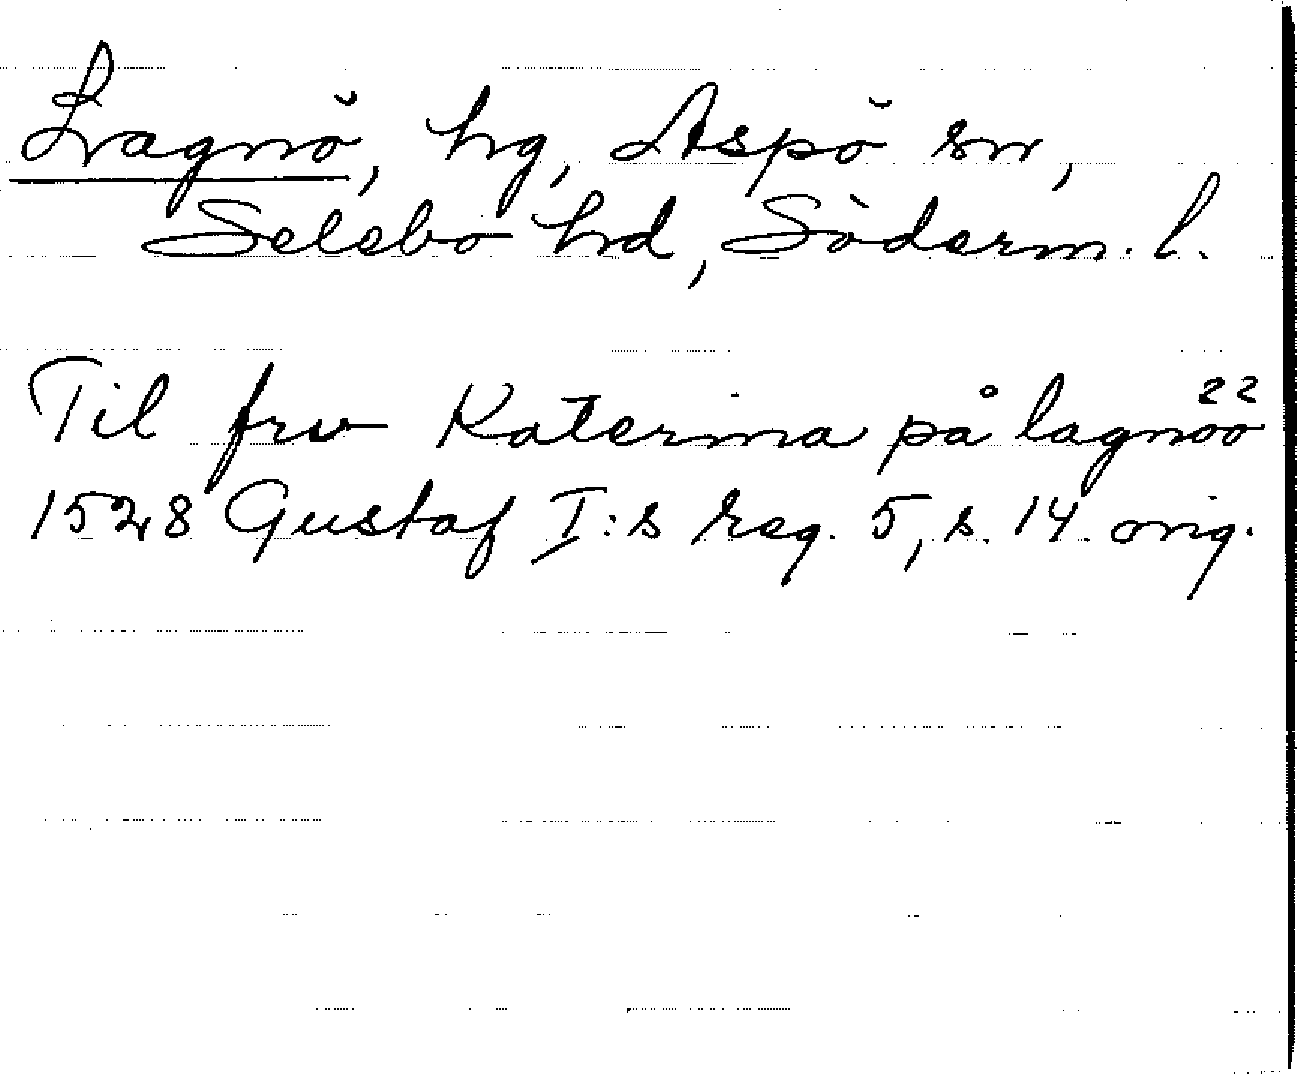 Lagnö, hg, Aspö sn,
Selebo hd, Söderm. l.
Til frv Katerina på lagnöö
1528 Gustaf I:s reg. 5, s. 14. orig.